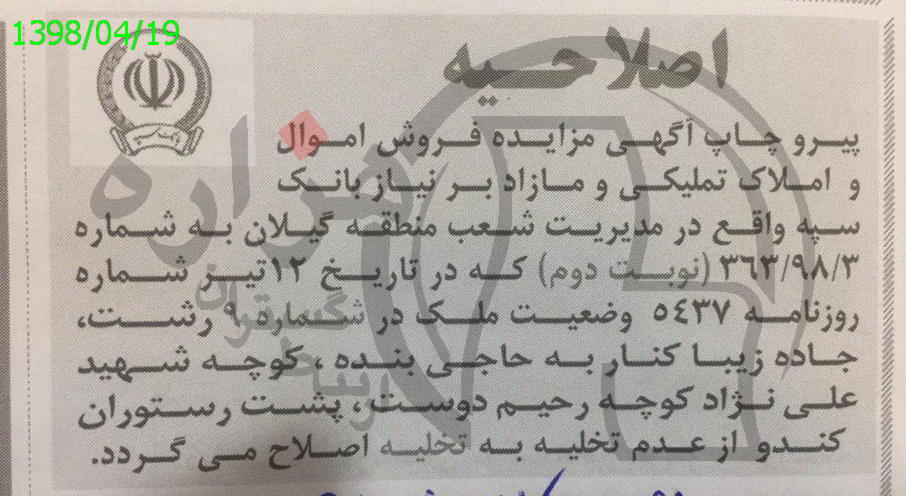 1398/04/19
اصلاحیه
پیرو چاپ آگهی مزایده فروش اموال
و املاک تملیکی و مازاد بر نیاز بانک
سپه واقع در مدیریت شعب منطقه گیلان به شماره
۳۶۳/۹۸/۳ (نوبت دوم) که در تاریخ ۱۲تیر شماره
روزنامه ۵۴۳۷ وضعیت ملک در شماره ۹ رشت،
جاده زیبا کنار به حاجی بنده ، کوچه شهید
علی نژاد کوچه رحیم دوست، پشت رستوران
کندو از عدم تخلیه به تخلیه اصلاح می گردد.